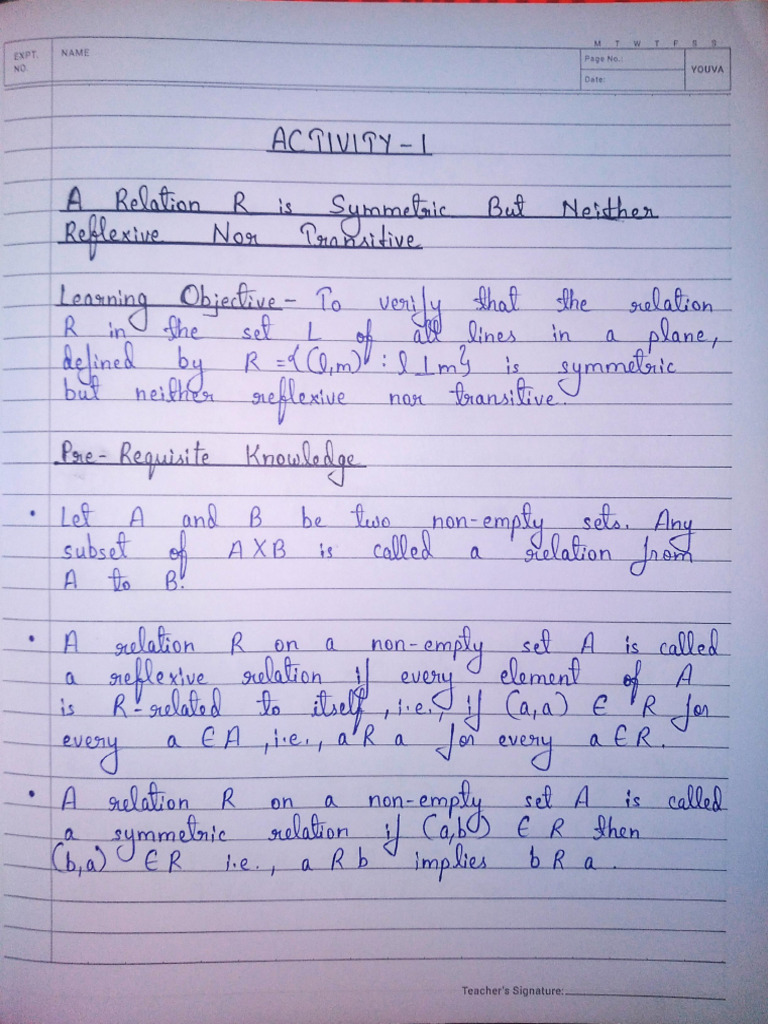 M T W T F S S
EXPT. NO.
NAME
Page No.:
Date:
YOUVA
ACTIVITY-1
A Relation R is Symmetric But Neither
Reflexive Nor Transitive
Learning Objective- To verify that the relation
R in the set L of all lines in a plane,
defined by R = {(l,m) : l ⊥ m} is symmetric
but neither reflexive nor transitive.
Pre-Requisite Knowledge
• Let A and B be two non-empty sets. Any
subset of A X B is called a relation from
A to B.
• A relation R on a non-empty set A is called
a reflexive relation if every element of A
is R-related to itself, i.e., if (a,a) ∈ R for
every a ∈ A, i.e., a R a for every a ∈ R.
• A relation R on a non-empty set A is called
a symmetric relation if (a,b) ∈ R then
(b,a) ∈ R i.e., a R b implies b R a.
Teacher's Signature: